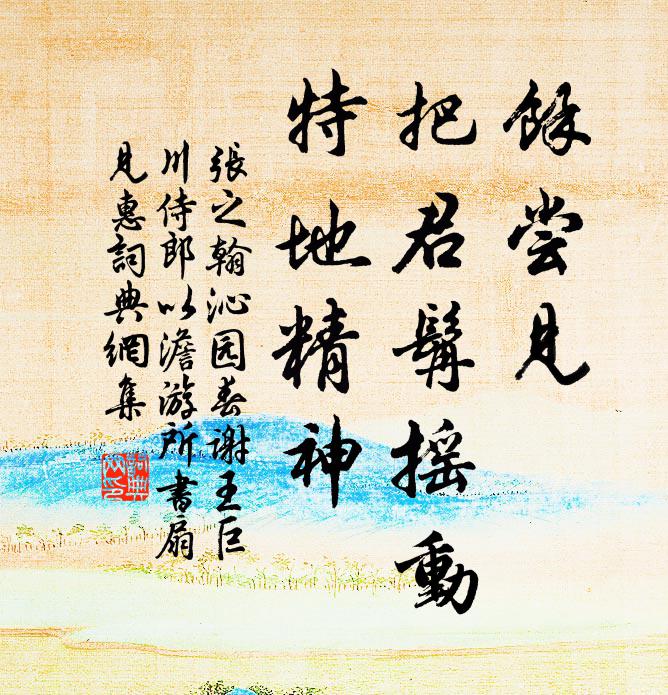 餘嘗見
把君髯摇動
特地精神
張之翰沁园春謝王巨
川侍郎以澹游所書扇
見惠詞典網集
詞典